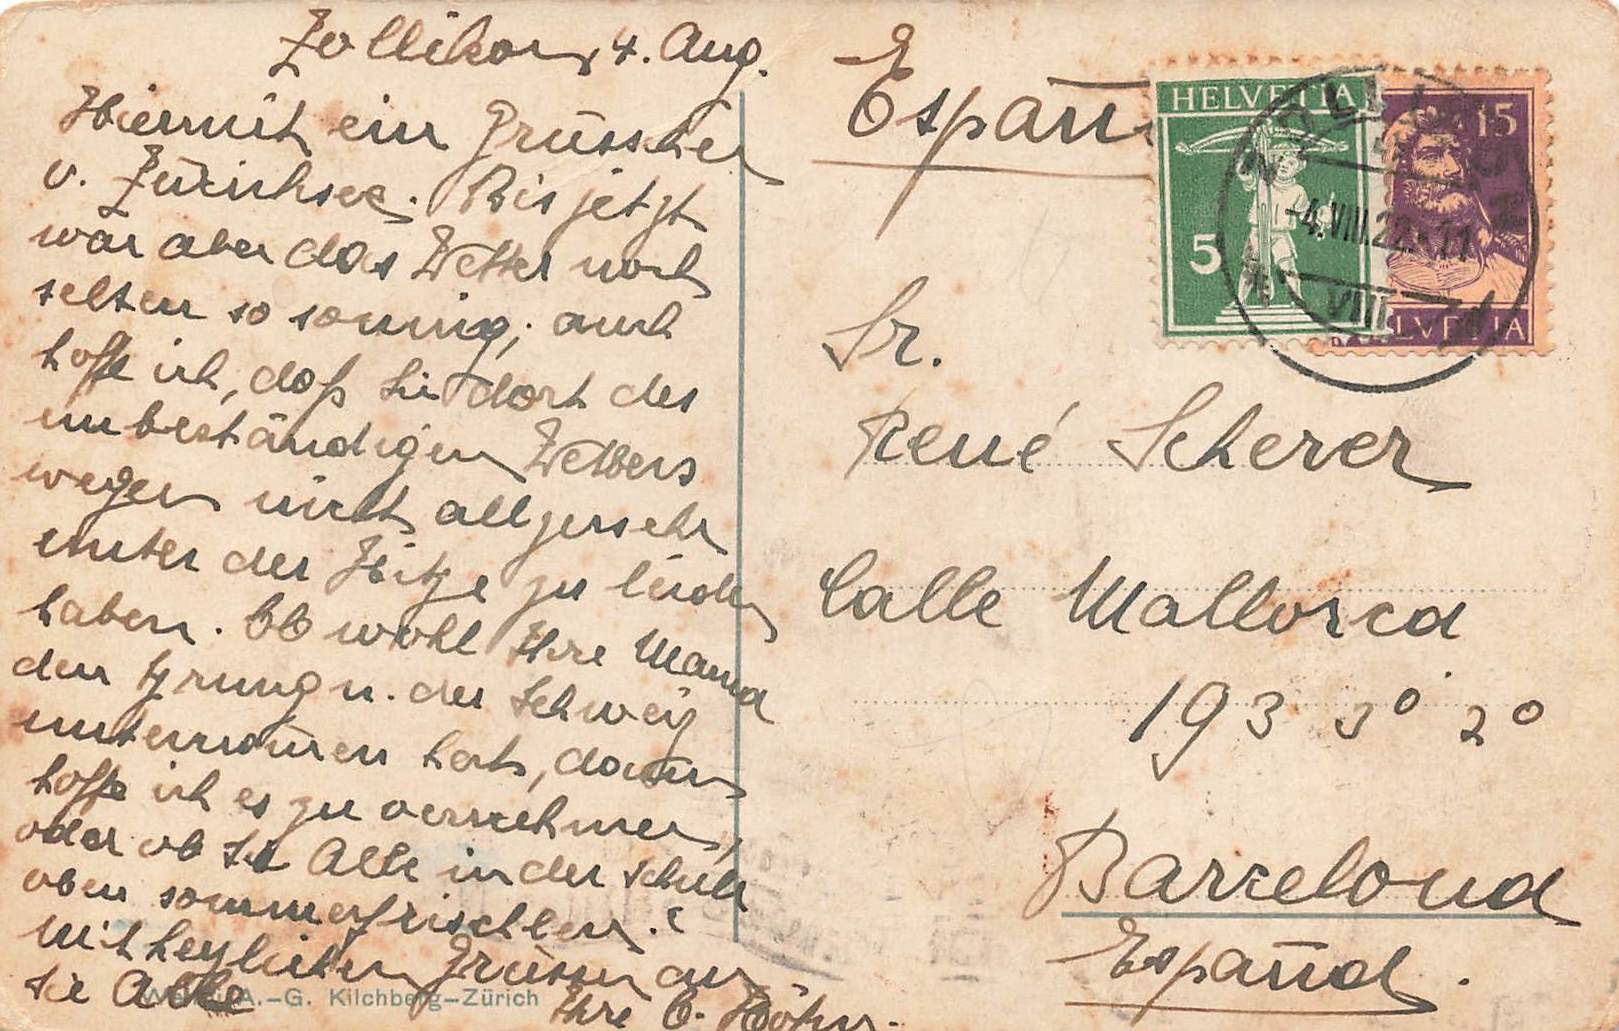 Zollikon, 4. Aug.
Hiermit ein Grüsschen
v. Zürichsee. Bis jetzt
war aber das Wetter noch
selten so sonnig; auch
hoffe ich, daß Sie dort des
unbeständigen Wetters
wegen nicht allzusehr
unter der Hitze zu leiden
haben. Ob wohl Ihre Mama
den n. der Schweiz
unternommen hat, davon
hoffe ich es zu vernehmen,
oder ob Sie Alle in der Schule
oben sommerfrischlen.?
Mit herzlichen Grüssen an
Sie Alle
Ihre E. Höhn.
W A.-G. Kilchberg-Zürich
España
HELVETIA
5
15
HELVETIA
-4.VIII.22.-11
VIII
Sr.
René Scherer
Calle Mallorca
193 3º 2º
Barcelona
España.